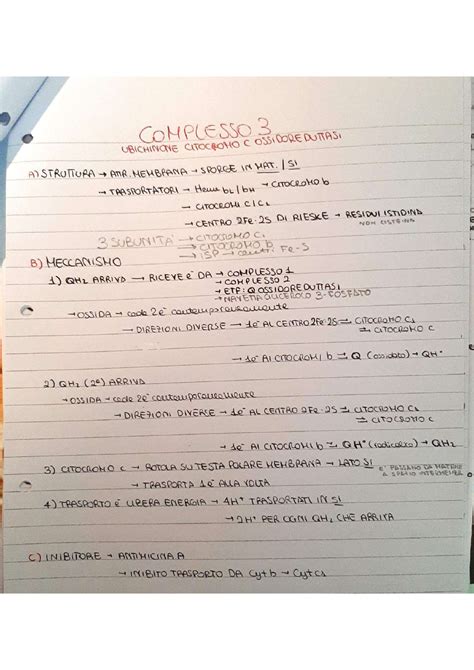 COMPLESSO 3
UBICHINONE CITOCROMO C OSSIDOREDUTTASI
A) STRUTTURA → ATR. MEMBRANA → SPORGE IN MAT. / SI
→ TRASPORTATORI → Heme bL / bH → CITOCROMO b
→ CITOCROMI C1 C
→ CENTRO 2Fe-2S DI RIESKE → RESIDUI ISTIDINA
NON CISTEINA
3 SUBUNITÀ → CITOCROMO C1
→ CITOCROMO b
→ ISP → centri Fe-S
B) MECCANISMO
1) QH2 ARRIVA → RICEVE é DA → COMPLESSO 1
→ COMPLESSO 2
→ ETF: Q OSSIDOREDUTTASI
→ NAVETTA GLICEROLO 3-FOSFATO
→ OSSIDA → cede 2é contemporaneamente
→ DIREZIONI DIVERSE → 1é AL CENTRO 2Fe-2S ⇌ CITOCROMO C1
⇌ CITOCROMO C
→ 1é AI CITOCROMI b ⇌ Q (ossidato) → QH°
2) QH2 (2°) ARRIVA
→ OSSIDA → cede 2é contemporaneamente
→ DIREZIONI DIVERSE → 1é AL CENTRO 2Fe-2S ⇌ CITOCROMO C1
⇌ CITOCROMO C
→ 1é AI CITOCROMI b ⇌ QH° (radicalico) → QH2
3) CITOCROMO C → ROTOLA SU TESTA POLARE MEMBRANA → LATO SI
é PASSANO DA MATRICE A SPAZIO INTERMEMBRA
→ TRASPORTA 1é ALLA VOLTA
4) TRASPORTO é LIBERA ENERGIA → 4H⁺ TRASPORTATI IN SI
→ 2H⁺ PER OGNI QH2 CHE ARRIVA
C) INIBITORE → ANTIMICINA A
→ INIBITO TRASPORTO DA Cyt b → Cyt C1